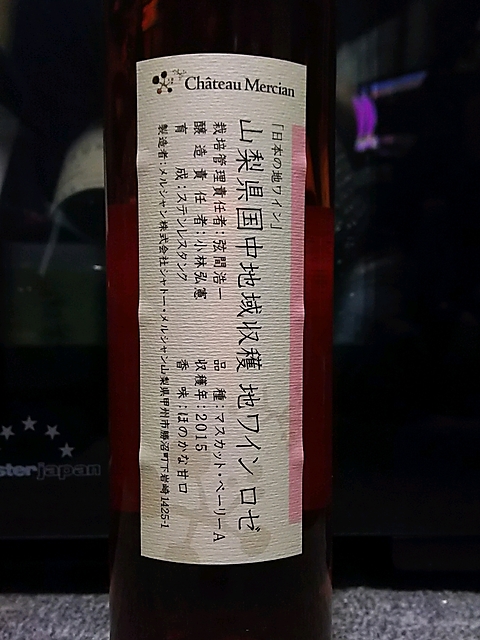 Château Mercian
「日本の地ワイン」
山梨県国中地域収穫 地ワイン ロゼ
栽培管理責任者:弦間浩一 品種:マスカット・ベーリーA
醸造責任者:小林弘憲 収穫年:2015
育成:ステンレスタンク 香味:ほのかな甘口
製造者:メルシャン株式会社シャトー・メルシャン山梨県甲州市勝沼町下岩崎1425-1
sterjapan